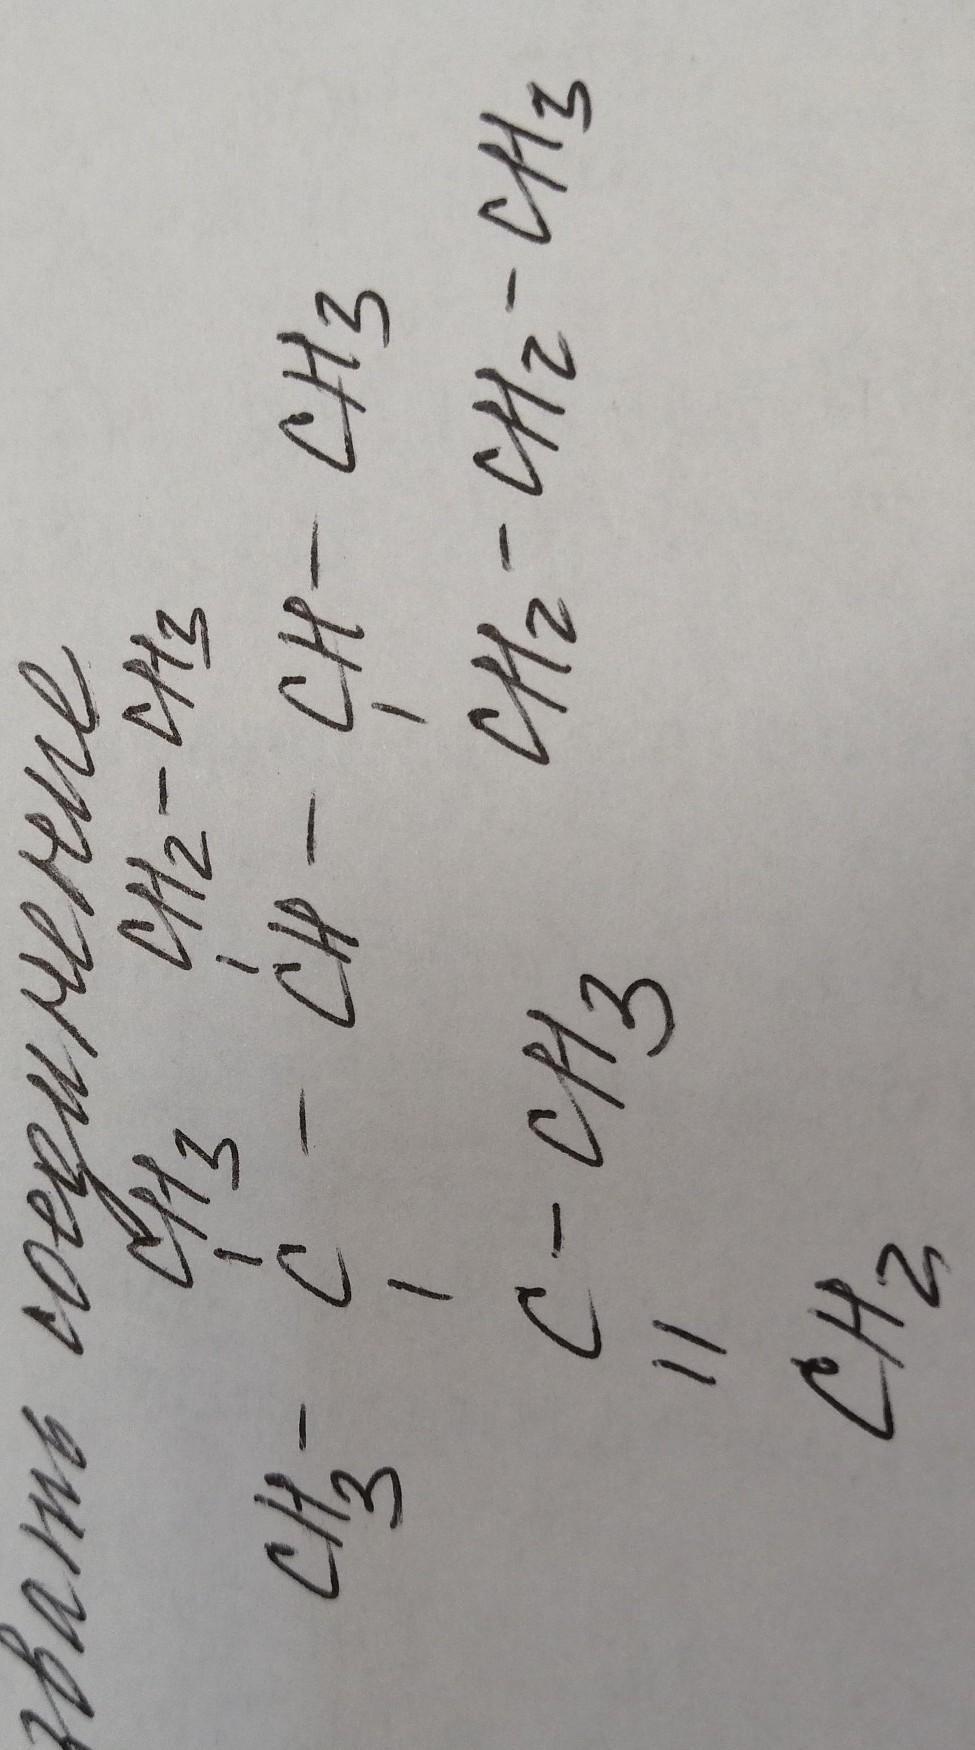 звать соединение
CH3 CH2 - CH3
CH3 - C - CH - CH - CH3
C - CH3 CH2 - CH2 - CH3
=
CH2